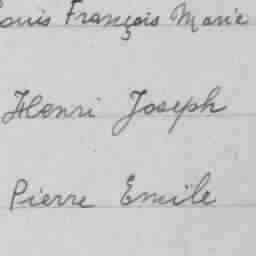 Louis François Marie
Henri Joseph
Pierre Emile